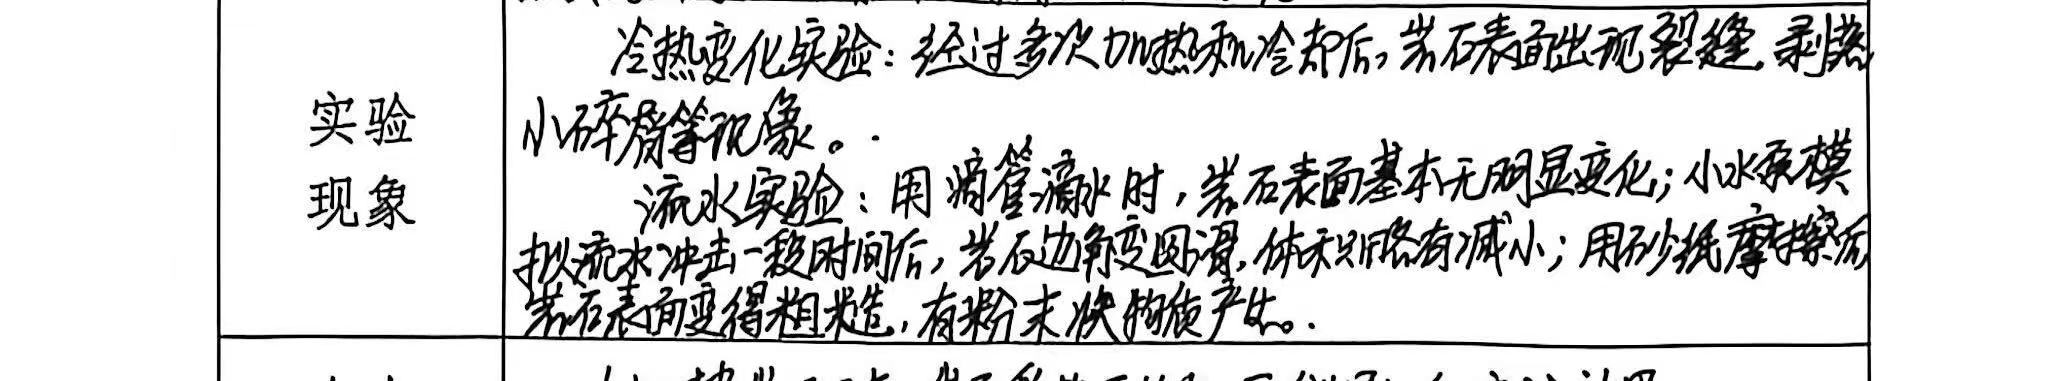 冷热变化实验：经过多次加热和冷却后，岩石表面出现裂缝，剥落
实验
小碎屑等现象。
现象
流水实验：用滴管滴水时，岩石表面基本无明显变化；小水泵模
拟流水冲击一段时间后，岩石边角变圆滑，体积略有减小；用砂纸摩擦后
岩石表面变得粗糙，有粉末状物质产生。